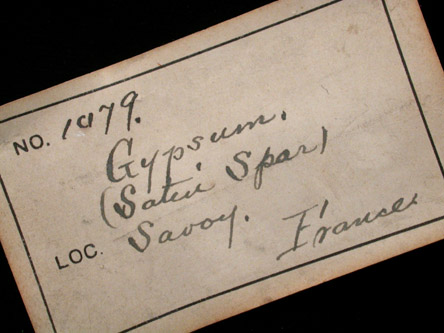 NO. 1979.
Gypsum.
(Satin Spar)
LOC. Savoy. France.